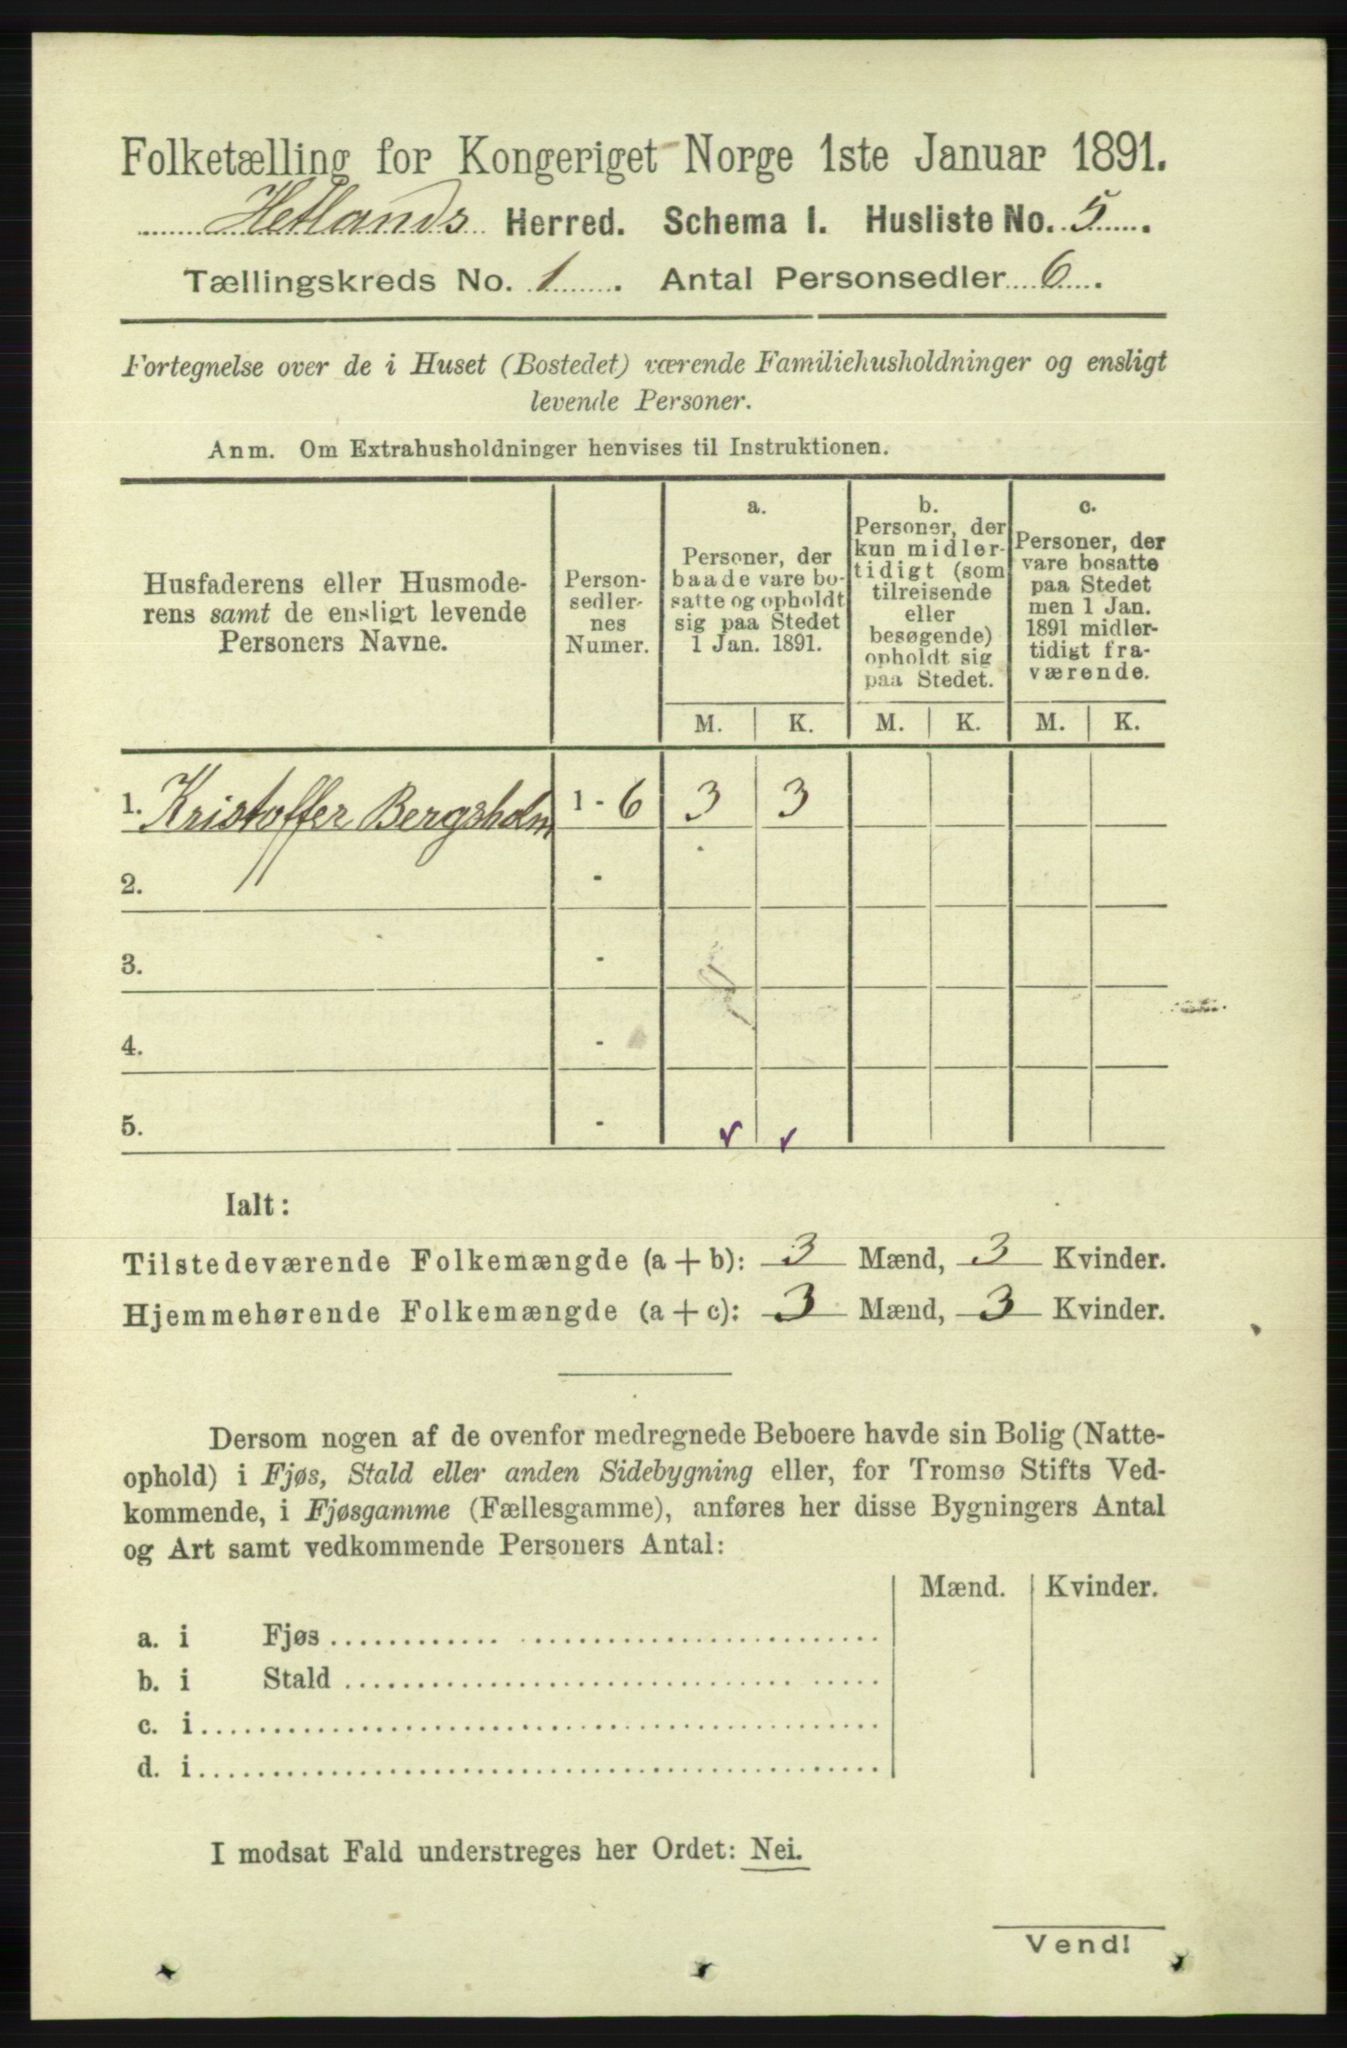 Folketælling for Kongeriget Norge 1ste Januar 1891.
Hetlands Herred. Schema I. Husliste No. 5.
Tællingskreds No. 1. Antal Personsedler 6.
Fortegnelse over de i Huset (Bostedet) værende Familiehusholdninger og ensligt
levende Personer.
Anm. Om Extrahusholdninger henvises til Instruktionen.
Husfaderens eller Husmode-
rens samt de ensligt levende
Personers Navne.
Person-
sedler-
nes
Numer.
a.
Personer, der
baade vare bo-
satte og opholdt
sig paa Stedet
1 Jan. 1891.
b.
Personer, der
kun midler-
tidigt (som
tilreisende
eller
besøgende)
opholdt sig
paa Stedet.
c.
Personer, der
vare bosatte
paa Stedet
men 1 Jan.
1891 midler-
tidigt fra-
værende.
M. K. M. K. M. K.
1. Kristoffer Bergsholm 1 - 6 3 3
2. -
3. -
4. -
5. -
Ialt:
Tilstedeværende Folkemængde (a + b): 3 Mænd, 3 Kvinder.
Hjemmehørende Folkemængde (a + c): 3 Mænd, 3 Kvinder.
Dersom nogen af de ovenfor medregnede Beboere havde sin Bolig (Natte-
ophold) i Fjøs, Stald eller anden Sidebygning eller, for Tromsø Stifts Ved-
kommende, i Fjøsgamme (Fællesgamme), anføres her disse Bygningers Antal
og Art samt vedkommende Personers Antal:
Mænd. Kvinder.
a. i Fjøs
b. i Stald
c. i
d. i
I modsat Fald understreges her Ordet: Nei.
Vend!